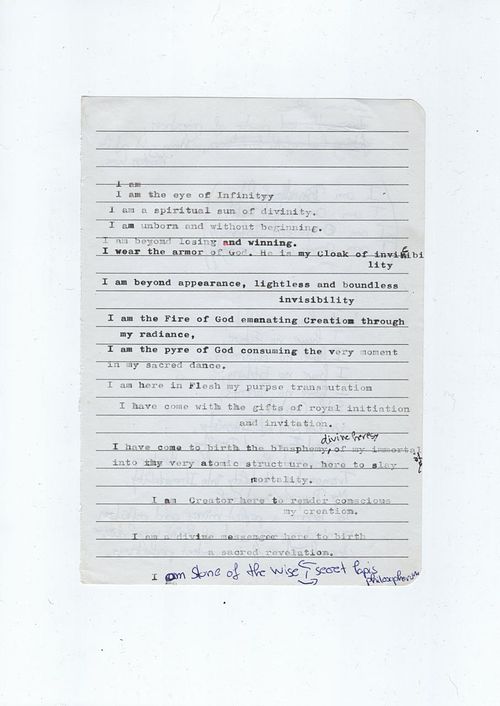 I am
I am the eye of Infinityy
I am a spiritual sun of divinity.
I am unborn and without beginning.
I am beyond losing and winning.
I wear the armor of God. He is my Cloak of invisibi
lity
I am beyond appearance, lightless and boundless
invisibility
I am the Fire of God emanating Creation through
my radiance,
I am the pyre of God consuming the very moment
in my sacred dance.
I am here in Flesh my purpse transmutation
I have come with the gifts of royal initiation
and invitation.
divine heresy
I have come to birth the blasphemy, of my immortal
into my very atomic structure, here to slay
mortality.
I am Creator here to render conscious
my creation.
I am a divine messenger here to birth
a sacred revelation.
I am Stone of the wise secret lapis
philosophorum